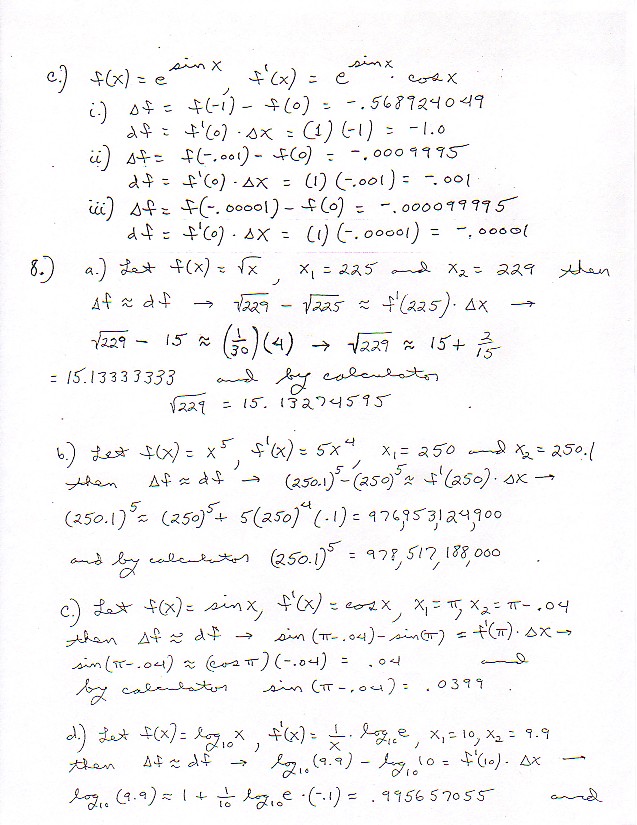 c.) f(x) = e^{sin x}, f'(x) = e^{sin x} · cos x
i.) Δf = f(-1) - f(0) = -.568924049
df = f'(0) · Δx = (1)(-1) = -1.0
ii) Δf = f(-.001) - f(0) = -.0009995
df = f'(0) · Δx = (1)(-.001) = -.001
iii) Δf = f(-.00001) - f(0) = -.000099995
df = f'(0) · Δx = (1)(-.00001) = -.00001
8.) a.) Let f(x) = √x, x₁ = 225 and x₂ = 229 then
Δf ≈ df → √229 - √225 ≈ f'(225) · Δx →
√229 - 15 ≈ (1/30)(4) → √229 ≈ 15 + 2/15
= 15.13333333 and by calculator
√229 = 15.13274595
b.) Let f(x) = x⁵, f'(x) = 5x⁴, x₁ = 250 and x₂ = 250.1
then Δf ≈ df → (250.1)⁵ - (250)⁵ ≈ f'(250) · Δx →
(250.1)⁵ ≈ (250)⁵ + 5(250)⁴(.1) = 976,953,124,900
and by calculator (250.1)⁵ = 978,517,188,000.
c.) Let f(x) = sin x, f'(x) = cos x, x₁ = π, x₂ = π - .04
then Δf ≈ df → sin(π-.04) - sin(π) ≈ f'(π) · Δx →
sin(π-.04) ≈ (cos π)(-.04) = .04 and
by calculator sin(π-.04) = .0399.
d.) Let f(x) = log₁₀ x, f'(x) = 1/x · log₁₀ e, x₁ = 10, x₂ = 9.9
then Δf ≈ df → log₁₀(9.9) - log₁₀ 10 = f'(10) · Δx →
log₁₀(9.9) ≈ 1 + 1/10 log₁₀ e · (-.1) = .995657055 and